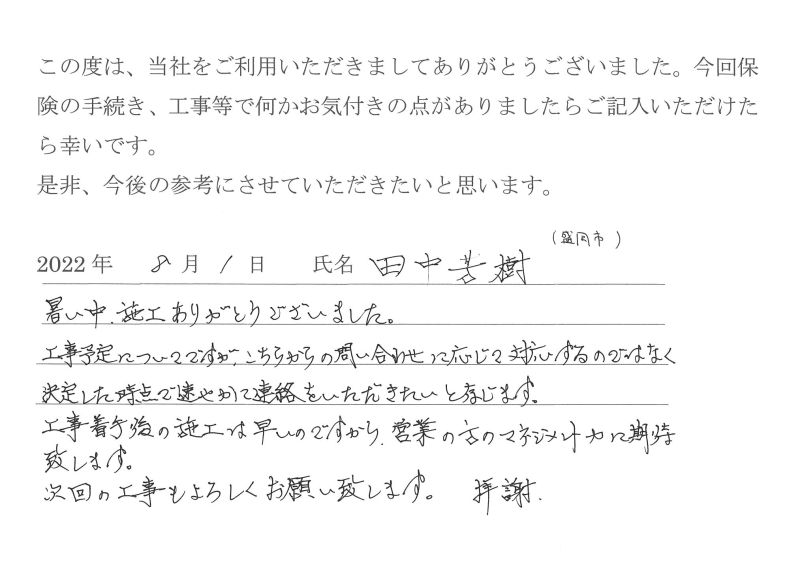 この度は、当社をご利用いただきましてありがとうございました。今回保
険の手続き、工事等で何かお気付きの点がありましたらご記入いただけた
ら幸いです。
是非、今後の参考にさせていただきたいと思います。
(盛岡市)
2022年 8月1日 氏名 田中芳樹
暑い中、施工ありがとうございました。
工事予定についてですが、こちらからの問い合わせに応じて対応するのではなく
決定した時点で速やかに連絡をいただきたいと存じます。
工事着手後の施工は早いのですから、営業の方のマネジメント力に期待
致します。
次回の工事もよろしくお願い致します。 拝謝.